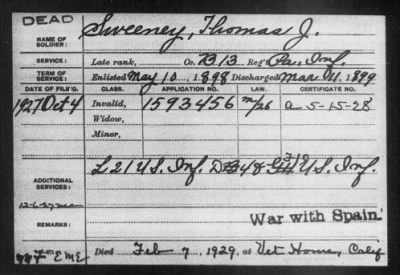 DEAD
NAME OF SOLDIER: Sweeney, Thomas J.
SERVICE: Late rank, Co. B 13 Reg't Pa. Inf.
TERM OF SERVICE: Enlisted May 10, 1898 Discharged Mar 11, 1899
DATE OF FILING. CLASS. APPLICATION NO. LAW. CERTIFICATE NO.
1927 Oct 4 Invalid, 1593456 m/26 a 5-15-28
Widow,
Minor,
ADDITIONAL SERVICES: L 21 U.S. Inf. 48 U.S. Inf.
12-6-27
War with Spain.
REMARKS:
Died Feb 7, 1929, at Vet Home, Calif